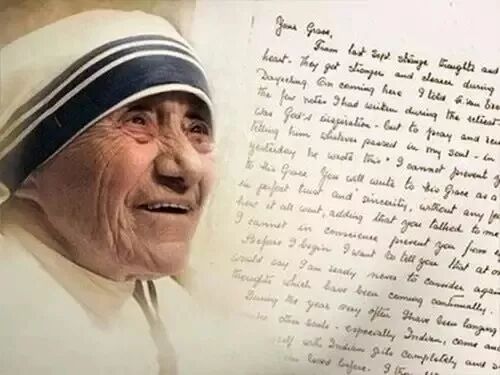 Your Grace,
From last Sept. strange thoughts and
heart. They got stronger and clearer during
Darjeeling. On coming here I told
the few notes I had written during the retreat
was God's inspiration - but to pray and
telling him whatever passed in my soul - in
yesterday he wrote this "I cannot prevent y
to His Grace. You will write to His Grace as a
in perfect trust and sincerity, without any f
how it all went, adding that you talked to me
I cannot in conscience prevent you from
Before I begin I want to tell you that at
would say I am ready never to consider again
thoughts which have been coming continually.
During the year very often I have been longing
other souls - especially Indian, come and
with Indian girls completely and
loved before. I